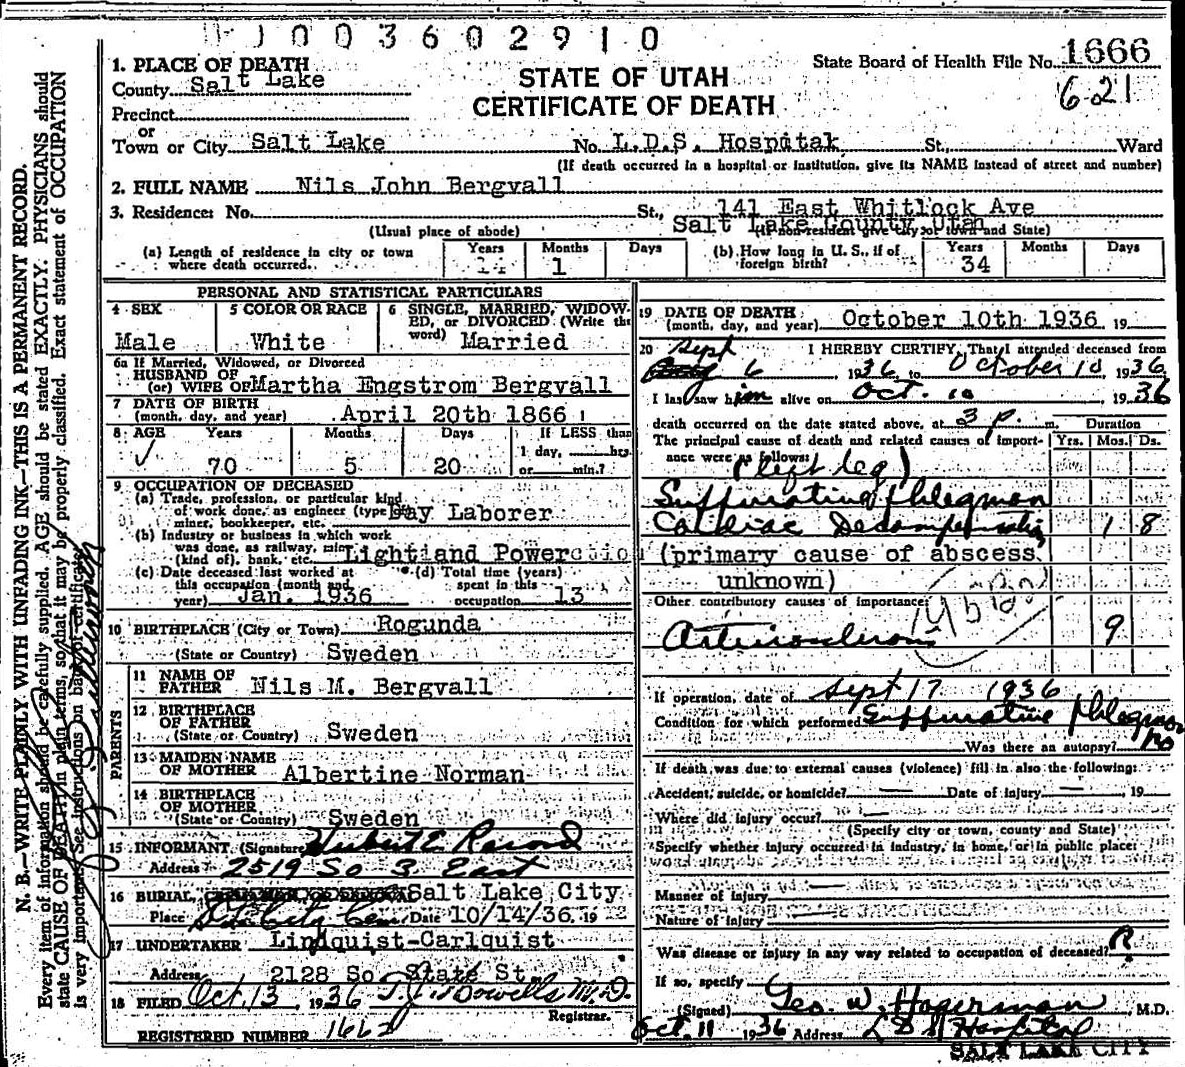 0 0 3 6 0 2 9 1 0
State Board of Health File No. 1666
621
STATE OF UTAH
CERTIFICATE OF DEATH
1. PLACE OF DEATH
County Salt Lake
Precinct
or
Town or City Salt Lake No. L.D.S. Hospitak St., Ward
(If death occurred in a hospital or institution, give its NAME instead of street and number)
2. FULL NAME Nils John Bergvall
3. Residence: No. St., 141 East Whitlock Ave
Salt Lake County Utah
(Usual place of abode) (If non-resident give city or town and State)
(a) Length of residence in city or town where death occurred. Years Months 1 Days
(b) How long in U. S., if of foreign birth? Years 34 Months Days
PERSONAL AND STATISTICAL PARTICULARS
4 SEX Male
5 COLOR OR RACE White
6 SINGLE, MARRIED, WIDOWED, or DIVORCED (Write the word) Married
6a If Married, Widowed, or Divorced
HUSBAND OF
(or) WIFE OF Martha Engstrom Bergvall
7 DATE OF BIRTH
(month, day, and year) April 20th 1866
8 AGE Years 70 Months 5 Days 20 If LESS than 1 day, hrs. or min.?
9 OCCUPATION OF DECEASED
(a) Trade, profession, or particular kind
of work done, as engineer (type Day Laborer
miner, bookkeeper, etc.
(b) Industry or business in which work
was done, as railway, Light and Power
(kind of), bank, etc.
(c) Date deceased last worked at
this occupation (month and
year) Jan. 1936
(d) Total time (years)
spent in this
occupation 13
10 BIRTHPLACE (City or Town) Rogunda
(State or Country) Sweden
PARENTS
11 NAME OF
FATHER Nils M. Bergvall
12 BIRTHPLACE
OF FATHER
(State or Country) Sweden
13 MAIDEN NAME
OF MOTHER Albertine Norman
14 BIRTHPLACE
OF MOTHER
(State or Country) Sweden
15 INFORMANT (Signature)
Address 2519 So 3 East
16 BURIAL, Salt Lake City
Place Date 10/14/36 19
17 UNDERTAKER Lindquist-Carlquist
Address 2128 So. State St.
18 FILED Oct. 13 1936 M.D.
Registrar.
REGISTERED NUMBER 1662
19 DATE OF DEATH
(month, day, and year) October 10th 1936 19
20 I HEREBY CERTIFY, That I attended deceased from
Sept 6, 1936 to October 10, 1936
I last saw him alive on Oct. 10 1936
death occurred on the date stated above, at 3 p. m.
Duration
The principal cause of death and related causes of importance were as follows: Yrs. Mos. Ds.
(left leg)
Suppurating Phlegmon
Cardiac Decompensation 1 8
(primary cause of abscess
unknown)
Other contributory causes of importance:
Arteriosclerosis 9
If operation, date of Sept 17 1936
Condition for which performed Suppurative Phlegmon
Was there an autopsy? no
If death was due to external causes (violence) fill in also the following:
Accident, suicide, or homicide? — Date of injury — , 19
Where did injury occur? —
(Specify city or town, county and State)
Specify whether injury occurred in industry, in home, or in public place:
Manner of injury
Nature of injury
Was disease or injury in any way related to occupation of deceased?
If so, specify
(Signed) Geo. W. Hagerman, M.D.
Oct. 11 1936 Address L D S Hospital
SALT LAKE CITY
N. B.—WRITE PLAINLY WITH UNFADING INK—THIS IS A PERMANENT RECORD.
Every item of information should be carefully supplied. AGE should be stated EXACTLY. PHYSICIANS should
state CAUSE OF DEATH in plain terms, so that it may be properly classified. Exact statement of OCCUPATION
is very important. See instructions on back of certificate.